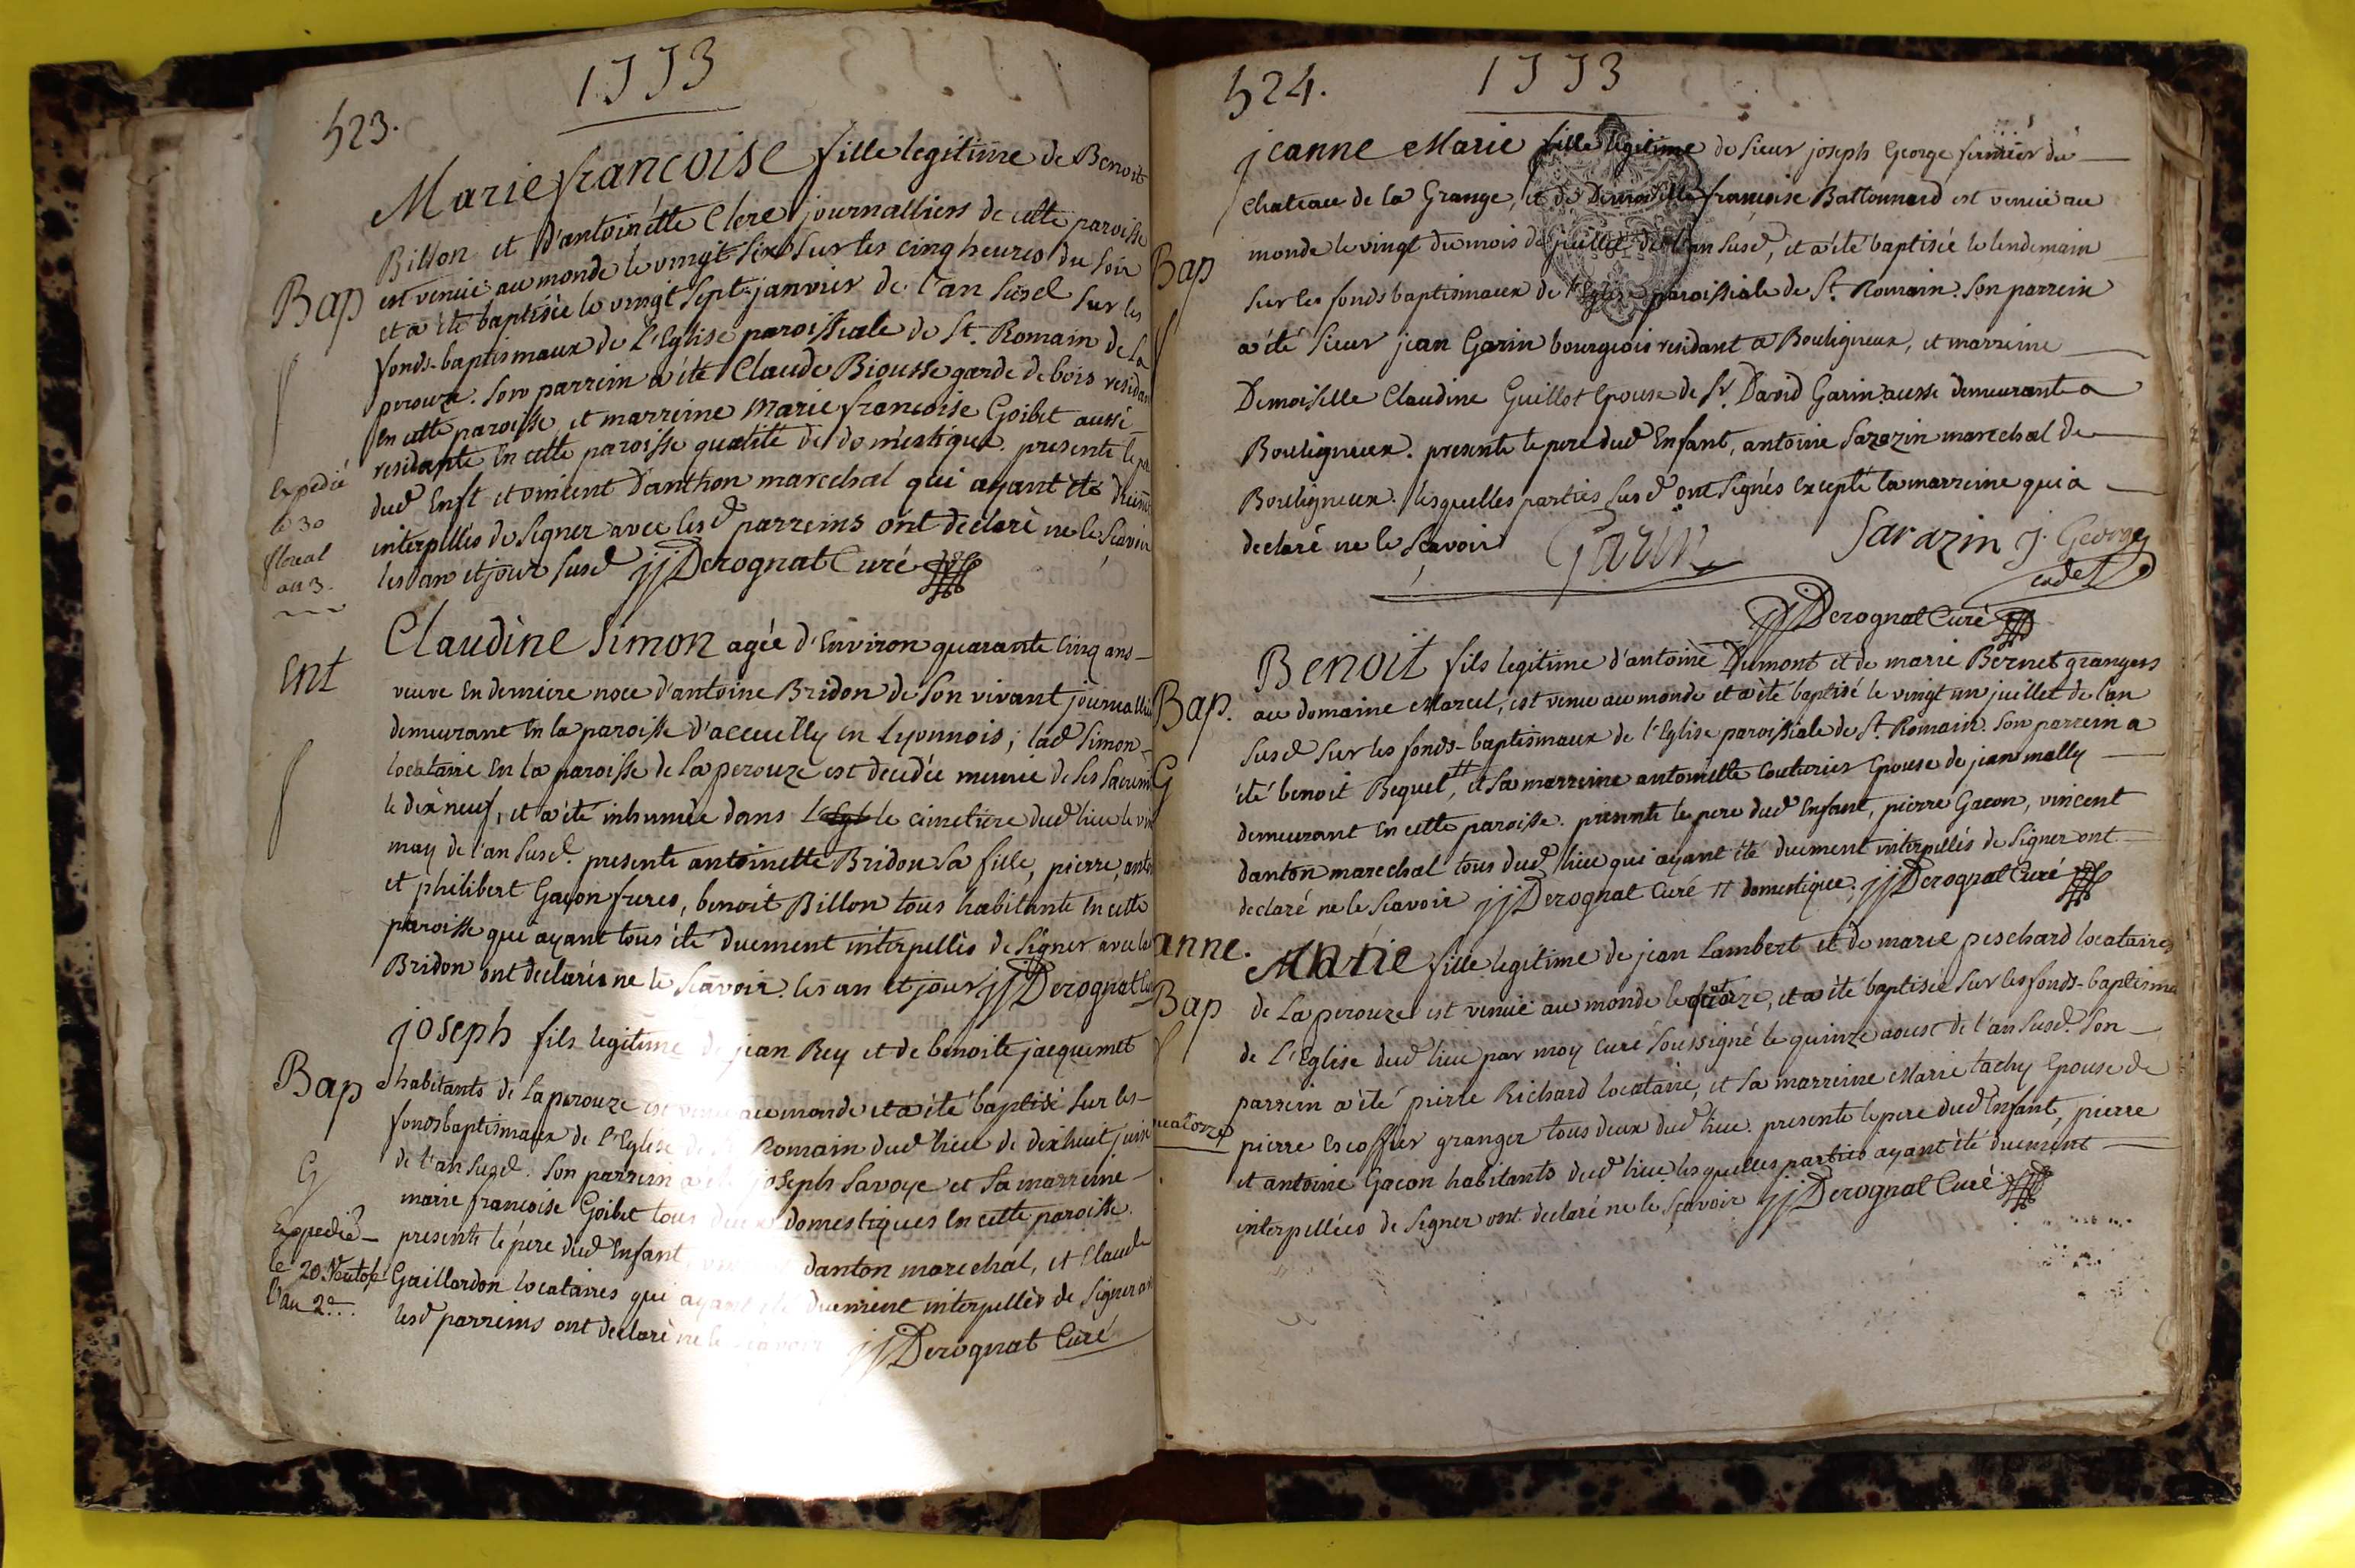 523.
1773
Marie francoise fille legitime de Benoit
Billon et d'antoinette Clere journalliers de cette paroisse
Bap
est venüe au monde le vingt six sur les cinq heures du soir
et a été baptisée le vingt sept janvier de l'an susd sur les
fonds-baptismaux de l'Eglise paroissiale de St. Romain de la
perouze. Son parrein a été Claude Biousse garde de bois residan
en cette paroisse, et marreine Marie francoise Goibet aussi
residante En cette paroisse qualité de domestique. presente le pe
dud Enft et vincent Danthon marechal qui ayant été duem
interpellés de signer avec lesd parreins ont declaré ne le sçavoir
les an et jour susd jjDerognat Curé
Expedié
le 30
floreal
an 3.
Claudine Simon agée d'Environ quarante cinq ans
Ent
veuve En derniere noce d'antoine Bridon de son vivant journallier
demeurant En la paroisse d'aeeuilly en Lyonnois; lad Simon
locataire En la paroisse de la perouze est decedée munie de ses sacrem
le dix neuf, et a été inhumée dans l'Egl le cimetiere dud lieu le vin
may de l'an susd. presente antoinette Bridon sa fille, pierre, anto
et philibert Gaçon freres, benoit Billon tous habitants En cette
paroisse qui ayant tous été duement interpellés de signer avec la
Bridon ont declarés ne le sçavoir. les an et jour jjDerognat Cu
joseph fils legitime de jean Rey et de benoite jacquemet
Bap
habitants de la perouze est venu au monde et a été baptisé sur les
fonds baptismaux de l'Eglise de Romain dud lieu de dixhuit juin
de l'an susd. Son parrein a été joseph Savoye et sa marreine
G
marie francoise Goibet tous deux domestiques En cette paroisse.
presente le père dud Enfant, danton marechal, et Claude
Gaillardon locataires qui ayant été duement interpellés de signer av
lesd parreins ont declaré ne le sçavoir jjDerognat Curé
Expedié
le 20 Ventose
l'an 2e.
524.
1773
jeanne Marie fille legitime de sieur joseph George fermier du
chateau de la Grange, et de Demoiselle françoise Battonnard est venüe au
Bap
monde le vingt du mois de juillet de l'an susd, et a été baptisée le lendemain
sur les fonds baptismaux de l'Eglise paroissiale de St. Romain. Son parrein
a été sieur jean Garin bourgeois residant a Bouligneux, et marreine
Demoiselle Claudine Guillot Epouse de Sr. David Garin aussi demeurante a
Bouligneux. presente le pere dud Enfant, antoine Sarazin marechal de
Bouligneux. lesquelles parties susd ont signés excepté la marreine qui a
declaré ne le sçavoir
Garin
Sarazin
J. George
cadet
jjDerognat Curé
Benoit fils legitime d'antoine Dumont et de marie Bernet grangers
Bap.
au domaine Marcel, est venu au monde et a été baptisé le vingt un juillet de l'an
susd sur les fonds-baptismaux de l'Eglise paroissiale de St. Romain. Son parrein a
G
été benoit Bequet, et sa marreine antoinette Couturier Epouse de jean mally
demeurant En cette paroisse. presente le pere dud Enfant, pierre Gacon, vincent
danton marechal tous dud lieu qui ayant été duement interpellés de signer ont
declaré ne le sçavoir jjDerognat Curé # domestique. jjDerognat Curé
anne.
Marie fille legitime de jean Lambert et de marie peschard locataires
Bap
de la perouze est venüe au monde le quatorze, et a été baptisée sur les fonds-baptisma
de l'Eglise dud lieu par moy curé soussigné le quinze aoust de l'an susd. Son
parrein a été pierre Richard locataire, et sa marreine Marie tachy Epouse de
quatorze
pierre Escoffier granger tous deux dud lieu. presente le pere dud Enfant, pierre
et antoine Gacon habitants dud lieu, lesquelles parties ayant été duement
interpellées de signer ont declaré ne le sçavoir jjDerognat Curé